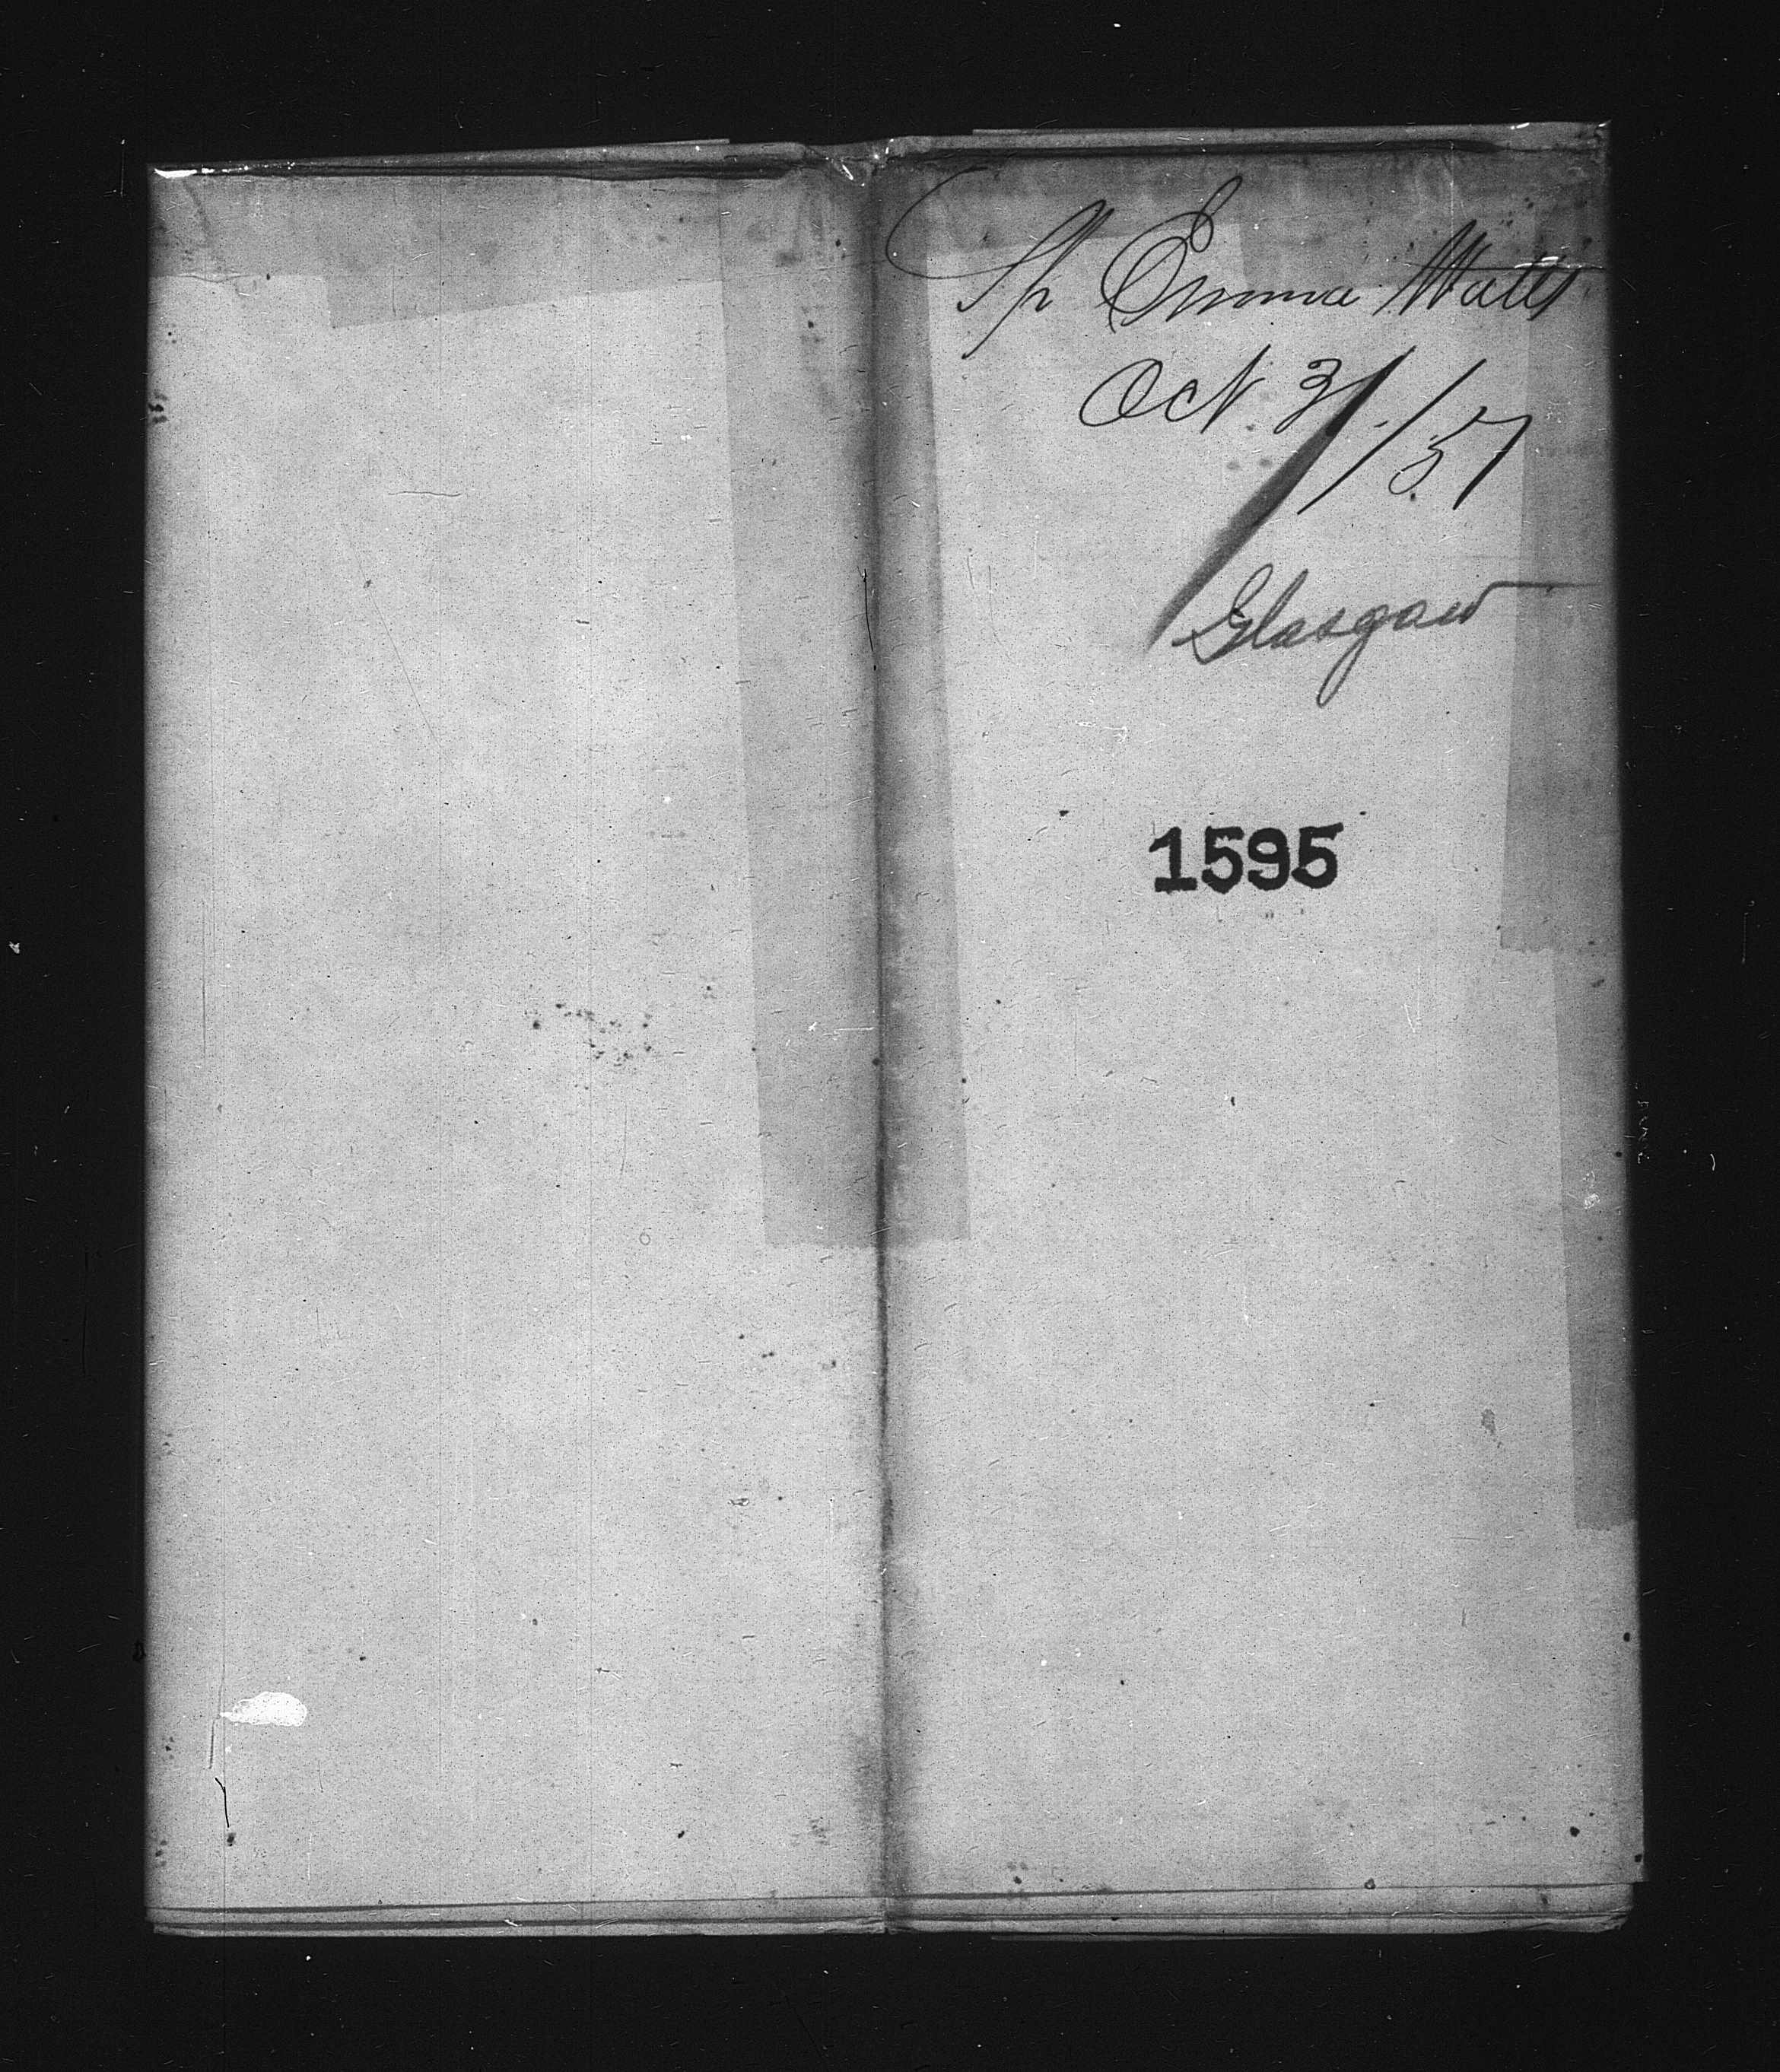 Sh Emma Watts
Oct 31/57
Glasgow
1595